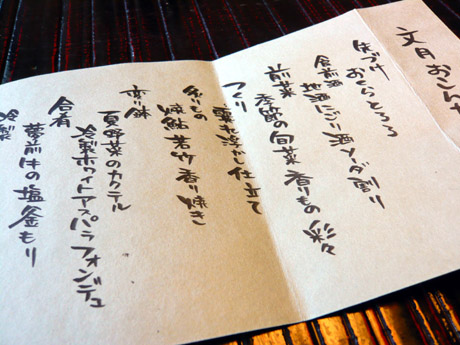 文月おこん
先づけ
おくらとろろ
食前酒
地酒にごり酒ソーダ割り
前菜
季節の旬菜 香りもの 彩々
つくり
浮かし仕立て
もの
焼鮎 若竹 香り焼き
鉢
夏野菜のカクテル
冷製ホワイトアスパラフォンデュ
合肴
の塩釜もり
冷製